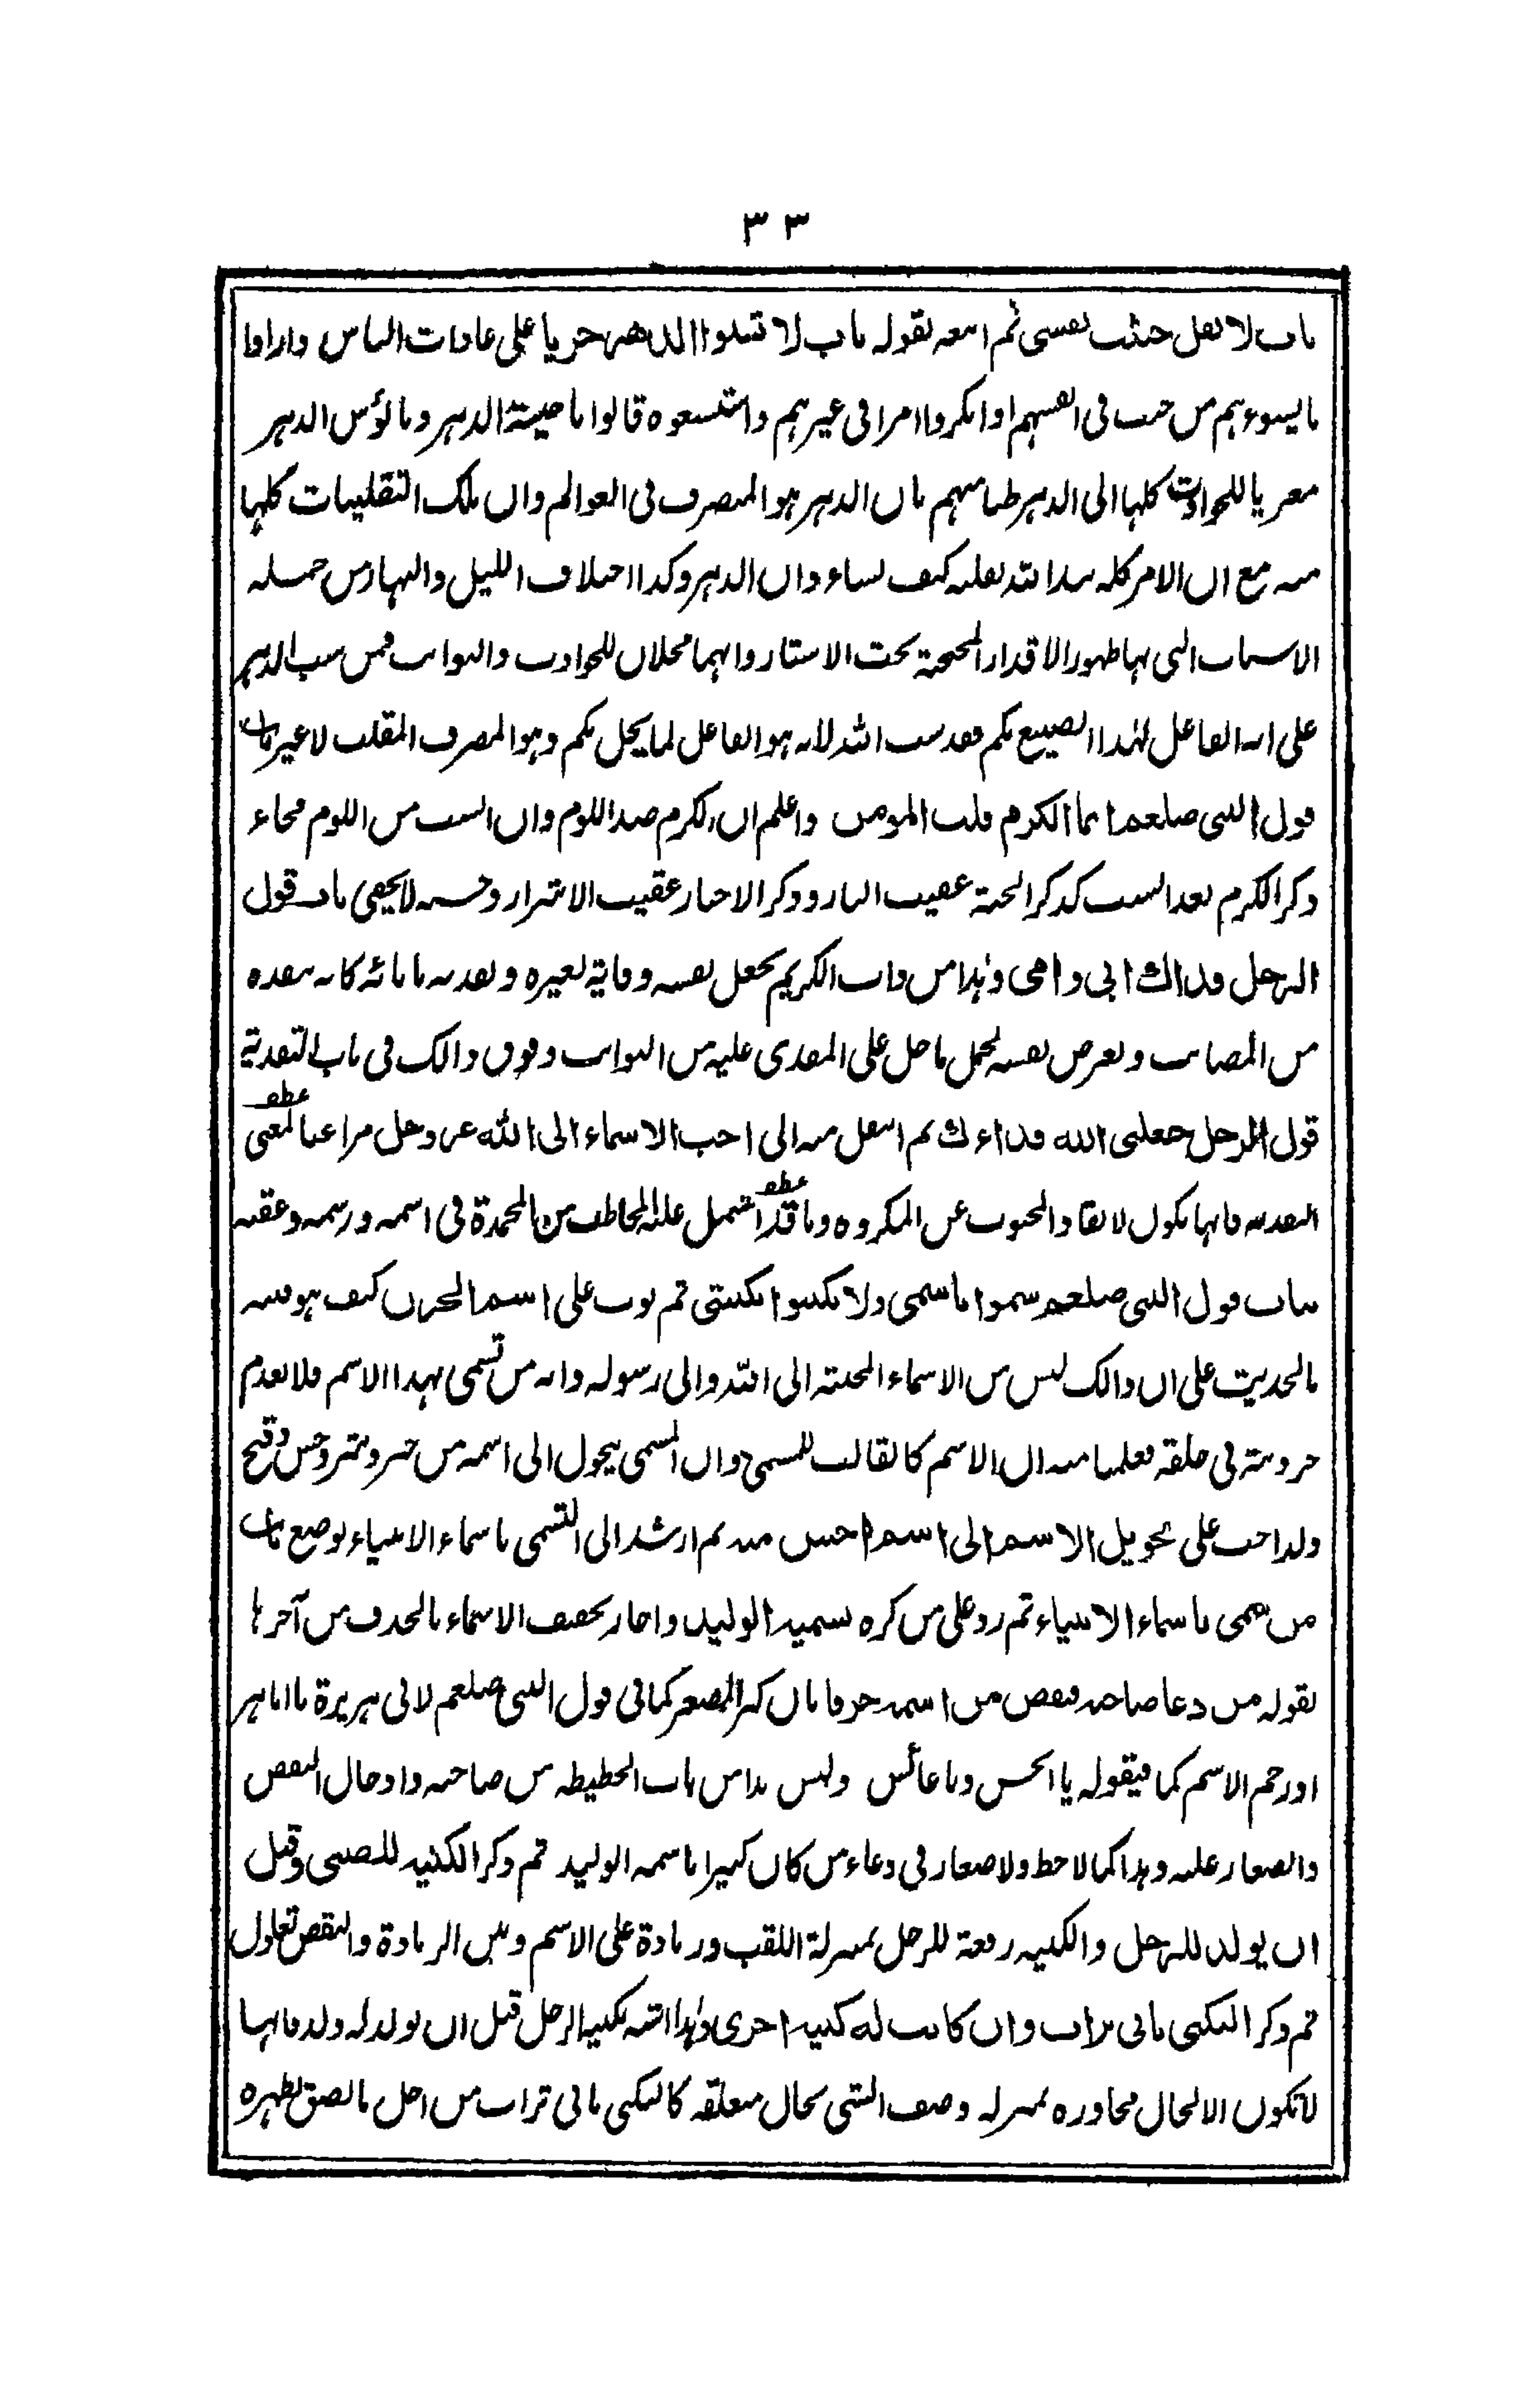 ٣٣
باب لا يقل خبثت نفسى ثم اتبعه بقوله باب لا تسبوا الدهر جريا على عادات الناس واذا راوا
ما يسوءهم من خبث فى انفسهم او انكروا امرا فى غيرهم واستبشعوه قالوا يا خيبة الدهر ويا لبؤس الدهر
معزيا للحوادث كلها الى الدهر ظنا منهم بان الدهر هو المتصرف فى العوالم وان تلك التقلبات كلها
منه مع ان الامر كله بيد الله يقلبه كيف يشاء وان الدهر وكذا اختلاف الليل والنهار من جملة
الاسباب التى بها ظهور الاقدار المحتجبة تحت الاستار وانهما محلان للحوادث والنوائب فمن سب الدهر
على انه الفاعل لهذا الصنيع بكم فقد سب الله لانه هو الفاعل لما يحل بكم وهو المصرف المقلب لا غير باب
قول النبى صلعم انما الكرم قلب المومن واعلم ان الكرم ضد اللوم وان السب من اللوم فجاء
ذكر الكرم بعد السب كذكر الجنة عقيب النار وذكر الاخيار عقيب الاشرار وحسنه لا يخفى باب قول
الرجل فداك ابى وامى وهذا من داب الكريم يجعل نفسه وقاية لغيره وتفديته بابائه كانه ينقذه
من المصائب ويعرض نفسه لحمل ما حل على المفدى عليه من النوائب وفوق ذالك فى باب التفدية
قول الرجل جعلنى الله فداءك ثم انتقل منه الى احب الاسماء الى الله عز وجل مراعيا لمعنى
التفدية فانها تكون لانقاذ المحبوب عن المكروه وما قد اشتمل عليه المخاطب من المحمدة فى اسمه ورسمه وعقبه
بباب قول النبى صلعم سموا باسمى ولا تكنوا بكنيتى ثم بوب على اسم الحزن كيف هو منبه
بالحديث على ان ذالك ليس من الاسماء المحببة الى الله والى رسوله وانه من تسمى بهذا الاسم فلا يعدم
حزونة فى خلقه فعلمنا منه ان الاسم كالقالب للمسمى وان المسمى يحول الى اسمه من خير وشر وحسن وقبح
ولذا حث على تحويل الاسم الى اسم احسن منه ثم ارشد الى التسمى باسماء الانبياء بوضع باب
من سمى باسماء الانبياء ثم رد على من كره تسمية الوليد واجاز تخفيف الاسماء بالحذف من آخرها
بقوله من دعا صاحبه فنقص من اسمه حرفا بان كبر المصغر كما فى قول النبى صلعم لابى هريرة يا ابا هر
او رخم الاسم كما فيقوله يا انجش ويا عائش وليس هذا من باب الحطيطة من صاحبه وادخال النقص
والصغار عليه وهذا كما لا حط ولا صغار فى دعاء من كان كبيرا باسمه الوليد ثم ذكر الكنية للصبى وقبل
ان يولد للرجل والكنية رفعة للرجل بمنزلة اللقب وزيادة على الاسم وبين الزيادة والنقص تقابل
ثم ذكر التكنى بابى تراب وان كانت له كنية اخرى وهذا اشبه بكنية الرجل قبل ان يولد له ولد فانها
لا تكون الا لحال مجاوره بمنزلة وصف الشى بحال متعلقه كالتكنى بابى تراب من اجل ما لصق بظهره